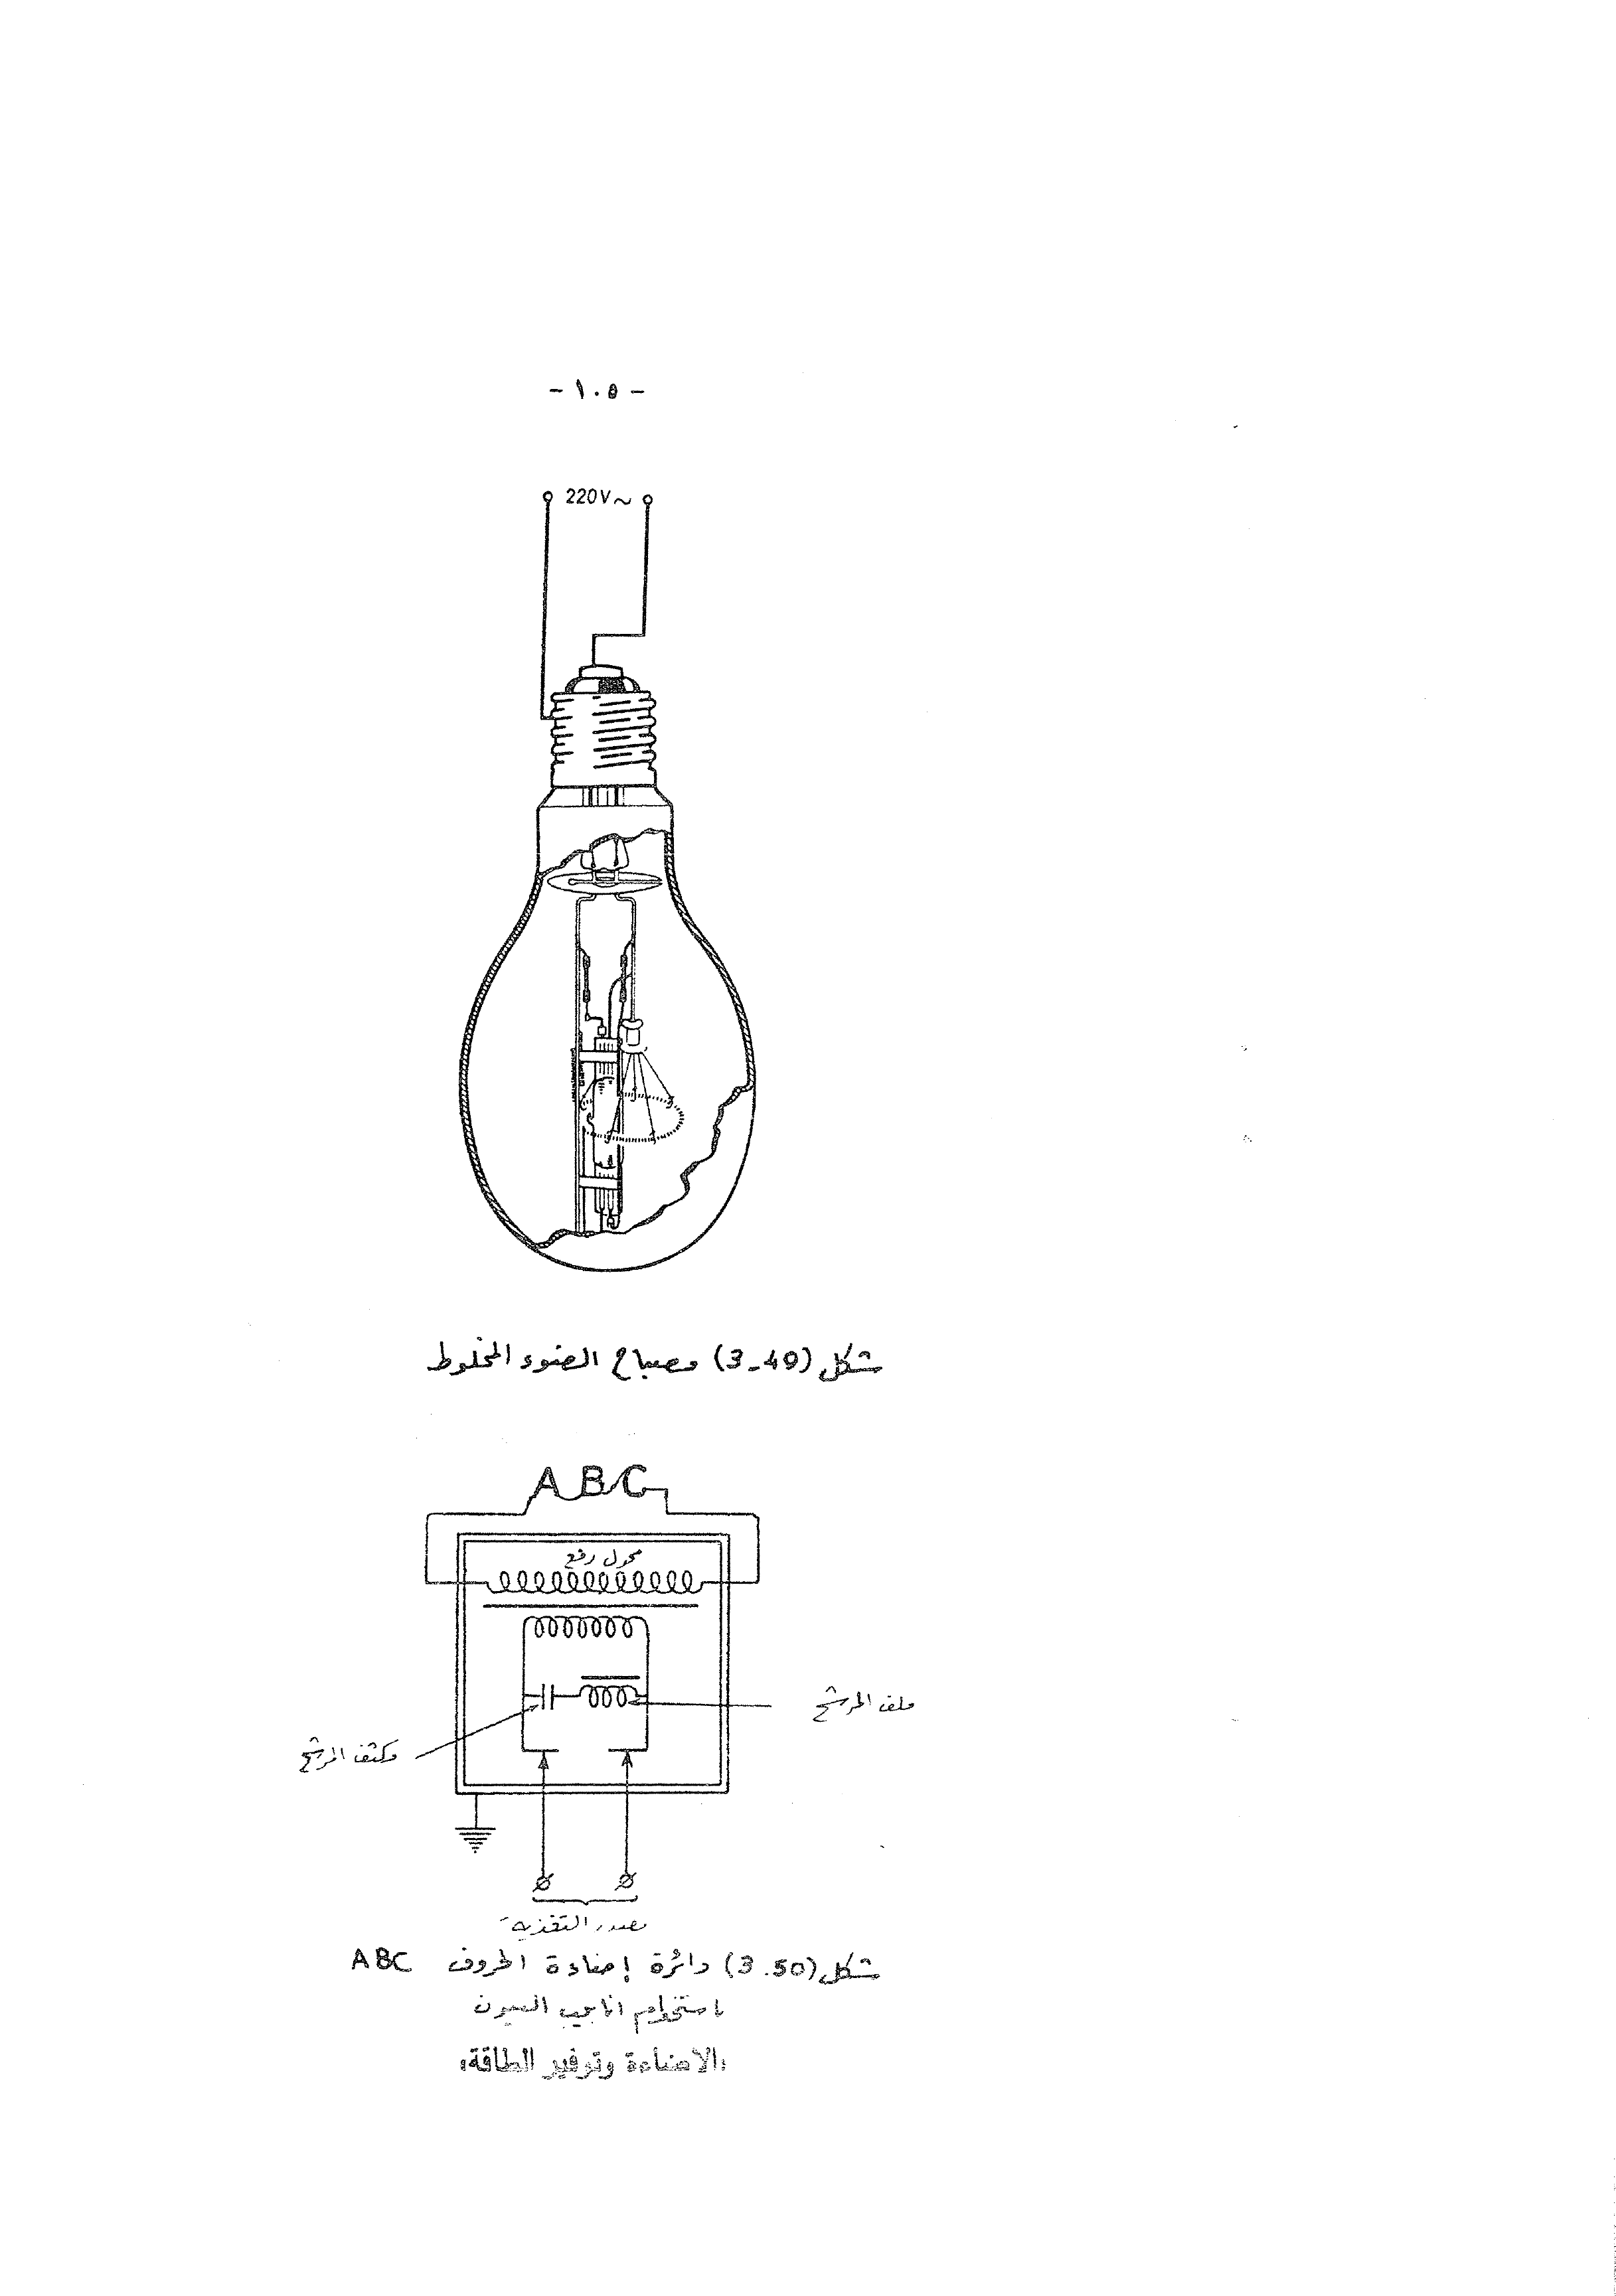 - ١٠٥ -
220V~
شكل (3-49) مصباح الضوء المخلوط
ABC
محول رفع
ملف المرشح
مكثف المرشح
مصدر التغذية
شكل (3.50) دائرة إضاءة الحروف ABC
باستخدام انابيب النيون
"الاضاءة وتوفير الطاقة"